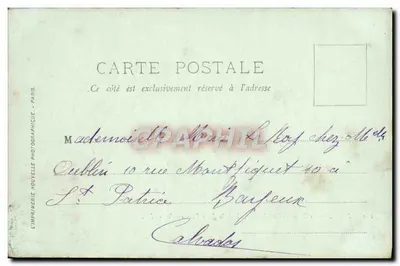 CARTE POSTALE
Ce côté est exclusivement réservé à l'adresse
Mademoiselle Marie Le chez Mlle
Aublin 10 rue Montfiquet 10 à
St Patrice Bayeux
Calvados
L'IMPRIMERIE NOUVELLE PHOTOGRAPHIQUE - PARIS